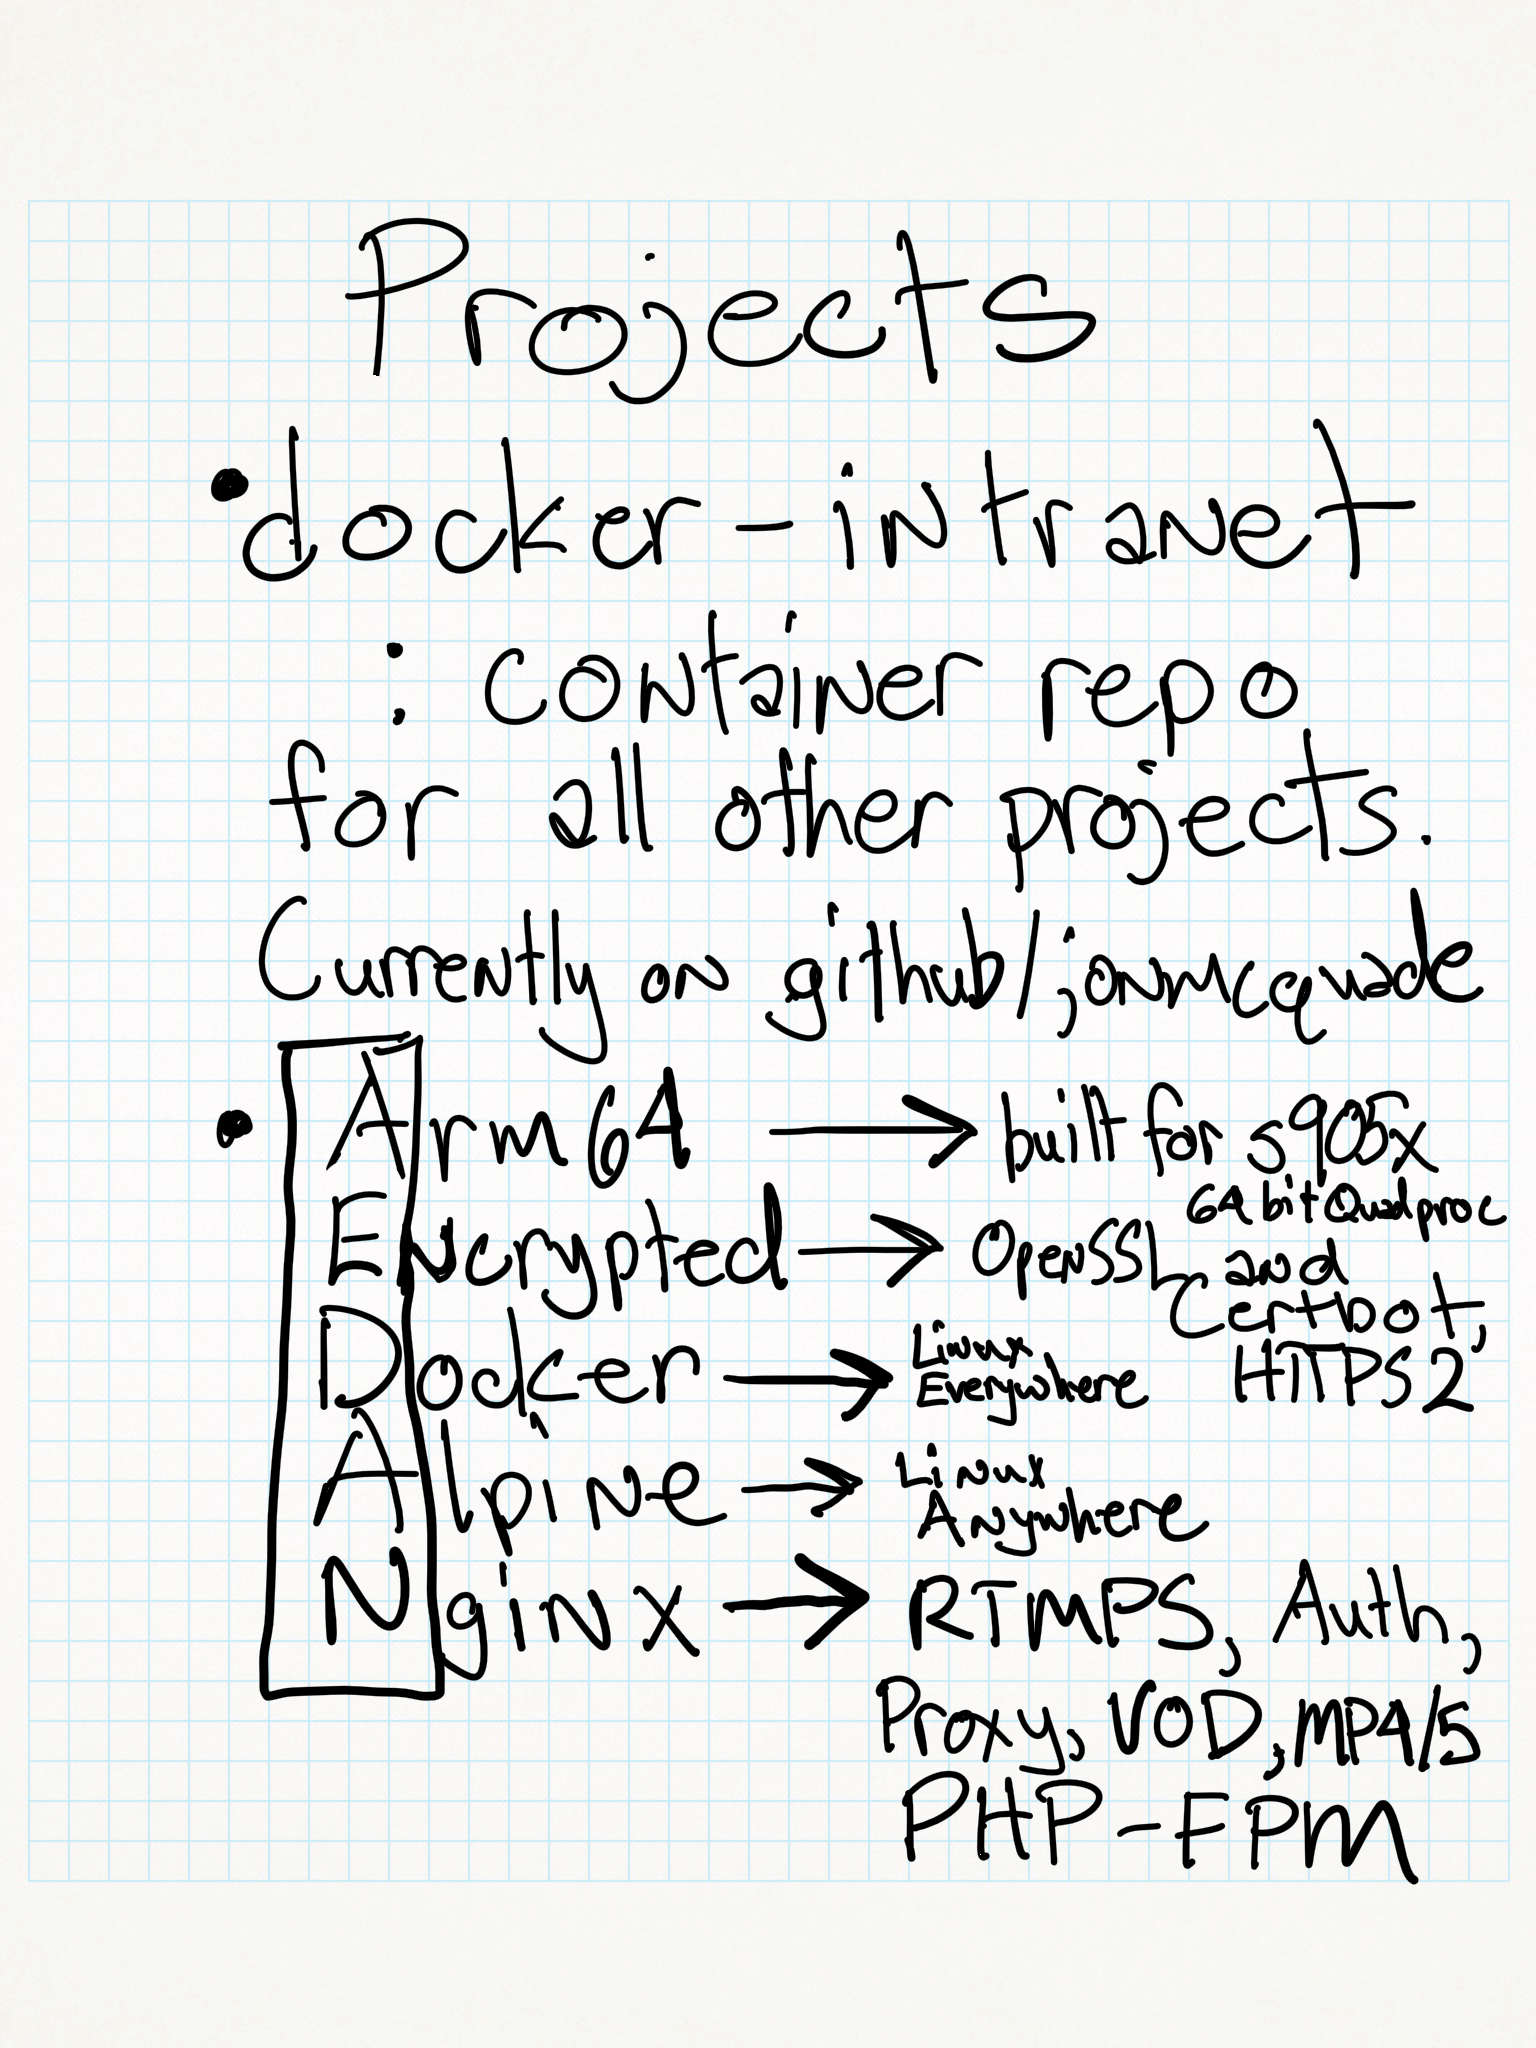 Projects
• docker-intranet
: container repo
for all other projects.
Currently on github/jonmcquade
• Arm64 → built for s905x
64bit Quad proc
Encrypted → OpenSSL and
Certbot,
HTTPS2
Docker → Linux
Everywhere
Alpine → Linux
Anywhere
Nginx → RTMPS, Auth,
Proxy, VOD, MP4/5
PHP-FPM